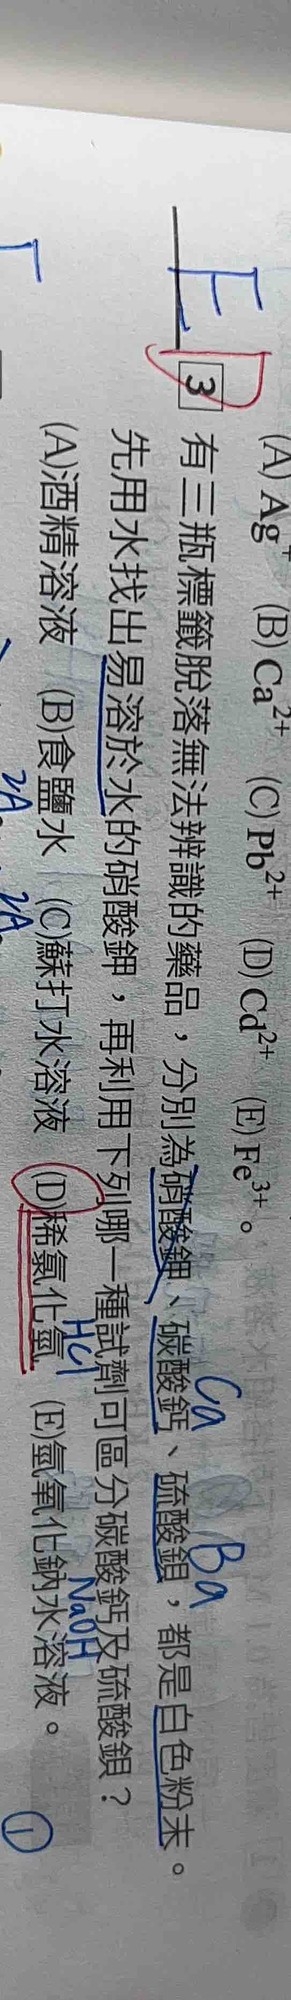 (A) Ag⁺ (B) Ca²⁺ (C) Pb²⁺ (D) Cd²⁺ (E) Fe³⁺。
E D 3 有三瓶標籤脫落無法辨識的藥品，分別為硝酸鉀、碳酸鈣、硫酸鋇，都是白色粉末。
Ca Ba
先用水找出易溶於水的硝酸鉀，再利用下列哪一種試劑可區分碳酸鈣及硫酸鋇？
HCl NaOH
(A)酒精溶液 (B)食鹽水 (C)蘇打水溶液 (D)稀氯化氫 (E)氫氧化鈉水溶液。
①